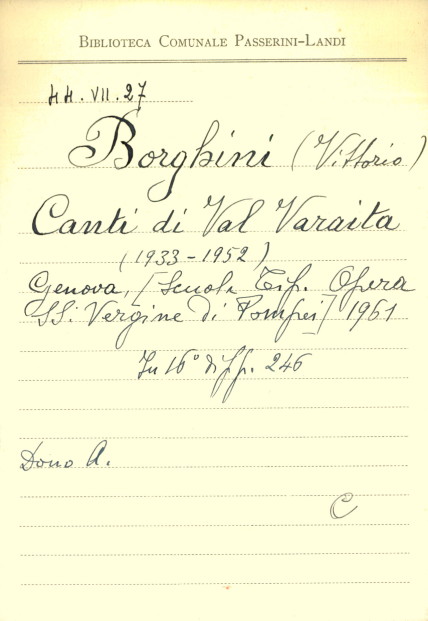 BIBLIOTECA COMUNALE PASSERINI-LANDI
44.VII.27
Borghini (Vittorio)
Canti di Val Varaita
(1933-1952)
Genova, [Scuola Tip. Opera
SS. Vergine di Pompei] 1961
In 16° di pp. 246
Dono A.
C